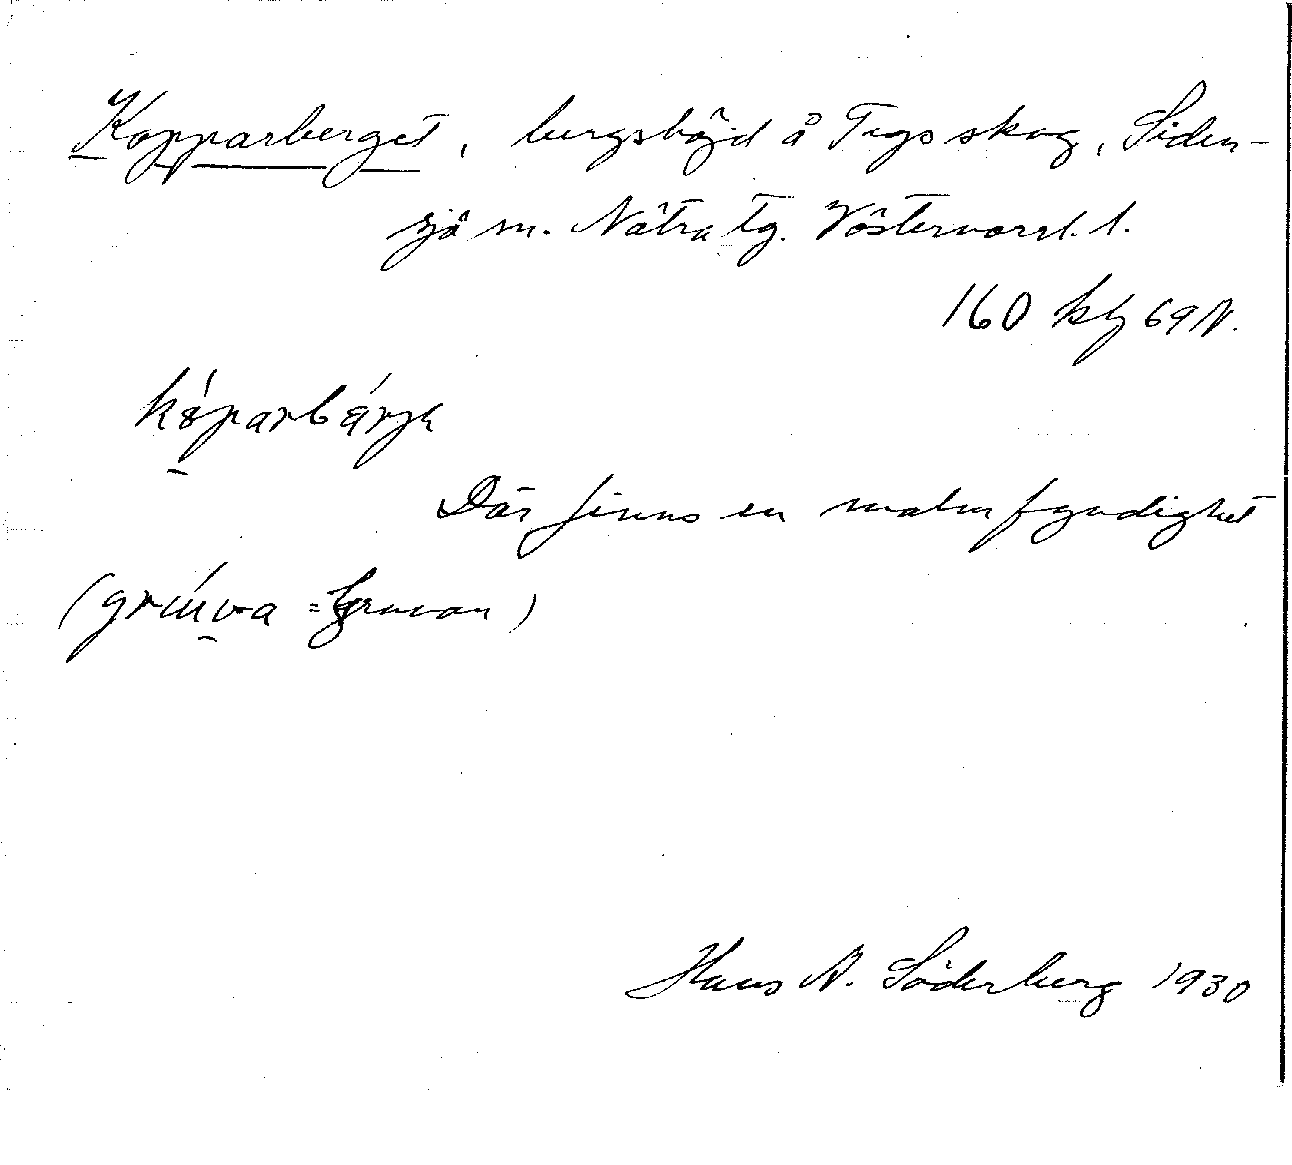 Kopparberget, bergshöjd å Tegs skog, Siden-
sjö sn. Nätra tg. Västernorrl. l.
160 kbl 69 N.
kóparbárjə
Där finns en malmfyndighet
(grúva = Gruvan)
Hans N. Söderberg 1930